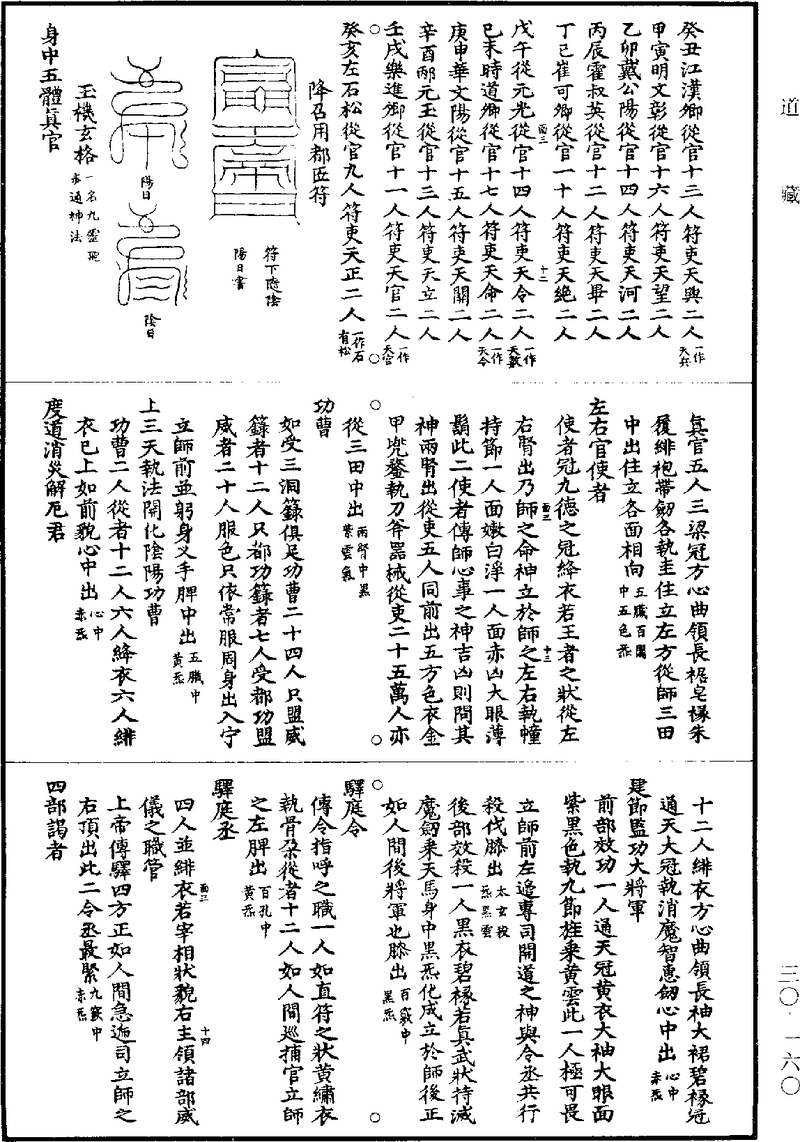 道藏
三〇·一六〇
癸丑江漢卿從官十三人符吏天與二人一作天兵
甲寅明文彰從官十六人符吏天望二人
乙卯戴公陽從官十四人符吏天河二人
丙辰霍叔英從官十二人符吏天畢二人
丁巳崔可卿從官一十人符吏天絕二人
戊午從元光從官十四人符吏天令二人一作天數
己未時道卿從官十七人符吏天命二人一作天令
庚申華文陽從官十五人符吏天關二人
辛酉邴元玉從官十三人符吏天立二人
壬戌樂進卿從官十一人符吏天官二人一作天宮
癸亥左石松從官九人符吏天正二人一作石有松
降召用都匠符
符下隱陰
陽日書
陽日
陰日
玉機玄格一名九靈飛步通神法
身中五體真官
真官五人三梁冠方心曲領長裾皂襈朱
履緋袍帶劒各執圭住立左方從師三田
中出住立各面相向五臟百關中五色炁
左右官使者
使者冠九德之冠絳衣若王者之狀從左
右腎出乃師之命神立於師之左右執幢
持節一人面嫩白淨一人面赤凶大眼薄
鬚此二使者傳師心事之神吉凶則問其
神兩腎出從吏五人同前出五方色衣金
甲兜鍪執刀斧器械從吏二十五萬人亦
從三田中出兩腎中黑紫雲氣
功曹
如受三洞籙俱足功曹二十四人只盟威
籙者十二人只都功籙者七人受都功盟
威者二十人服色只依常服周身出入守
立師前並躬身叉手脾中出五臟中黃炁
上三天執法開化陰陽功曹
功曹二人從者十二人六人絳衣六人緋
衣已上如前貌心中出心中赤炁
度道消災解厄君
十二人緋衣方心曲領長袖大裙碧襈冠
通天大冠執消魔智惠劒心中出心中赤炁
建節監功大將軍
前部效功一人通天冠黃衣大袖大眼面
紫黑色執九節旌乘黃雲此一人極可畏
立師前左邊專司開道之神與令丞共行
殺伐膝出太玄殺炁黑雲
後部效殺一人黑衣碧襈若真武狀持滅
魔劒乘天馬身中黑炁化成立於師後正
如人間後將軍也膝出百竅中黑炁
驛庭令
傳令指呼之職一人如直符之狀黃繡衣
執骨朶從者十二人如人間巡捕官立師
之左脾出百孔中黃炁
驛庭丞
四人並緋衣若宰相狀貌右主領諸部威
儀之職管
上帝傳驛四方正如人間急遞司立師之
右頂出此二令丞最緊九竅中赤炁
四部謁者